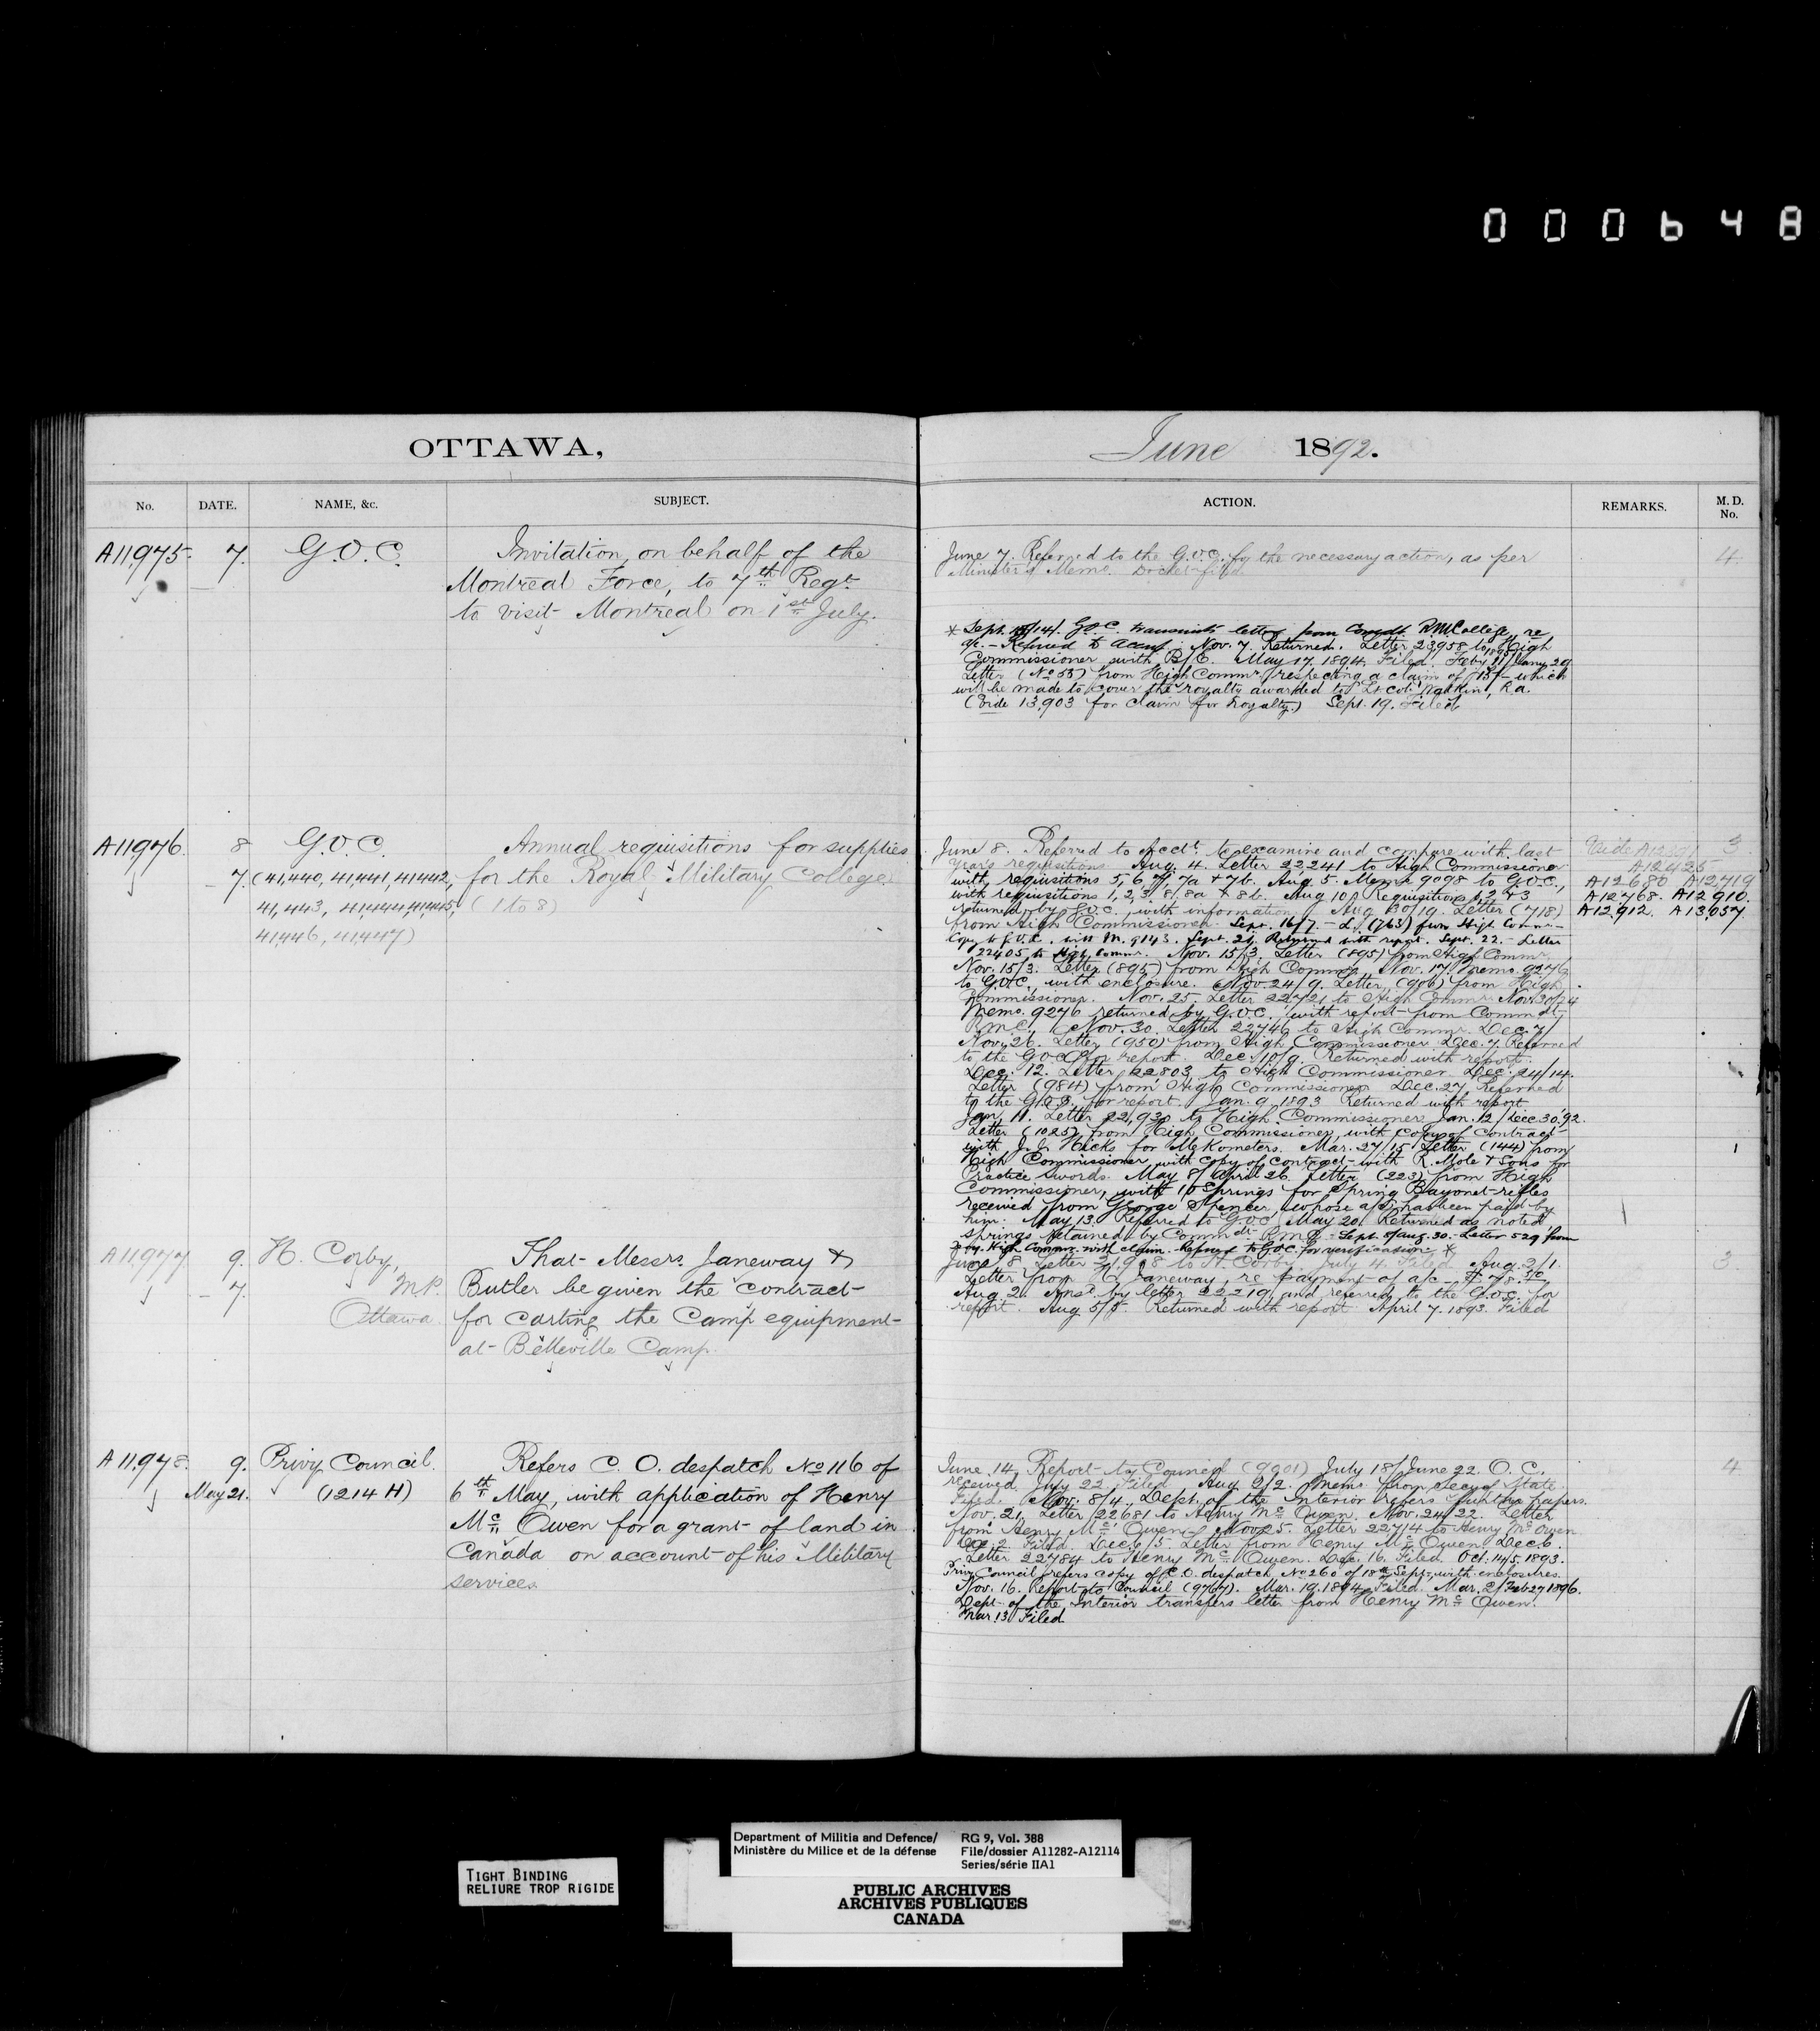 000648
OTTAWA, June 1892.
No. DATE. NAME, &c. SUBJECT. ACTION. REMARKS. M. D. No.
A11975. 7. G.O.C. Invitation, on behalf of the
Montreal Force, to 7th Regt
to visit Montreal on 1st July.
June 7. Referred to the G.O.C. for the necessary action, as per
Minister's Memo. Docket filed
4.
* Sept. 14. G.O.C. transmits letter from Comdt. RMCollege, re
a/c. - Referred to Acct. Nov. 7. Returned. Letter 23958 to High
Commissioner with B/E. May 17. 1894. Filed. Feby 11/ Jany 29
Letter (No 55) from High Commr respecting a claim of £15/- which
will be made to cover the royalty awarded to Lt Col. Watkin, R.A.
(Vide 13,903 for claim for Royalty.) Sept. 19. Filed
A11976. 8 G.O.C. Annual requisitions for supplies
- 7. (41,440, 41,441, 41,442, for the Royal Military College
41,443, 41,444, 41,445, (1 to 8)
41,446, 41,447)
June 8. Referred to Acct. to examine and compare with last
year's requisitions. Aug. 4. Letter 22,241 to High Commissioner
with requisitions 5, 6, 7, 7a & 7b. Aug. 5. Memo 9098 to G.O.C.,
with requisitions 1, 2, 3, 8, 8a & 8b. Aug 10. Requisitions 1, 2 & 3
returned by G.O.C., with information. Aug 30/19. Letter (718)
from High Commissioner. Sept. 16/7 - L. (763) from High Commr -
Copy to G.O.C. with M. 9143. Sept. 21. Returned with report. Sept. 22. - Letter
22405 to High Commr. Nov. 15/3. Letter (895) from High Commr
Nov. 15/3. Letter (895) from High Commr. Nov. 17. Memo. 9276
to G.O.C., with enclosure. Nov. 24/9. Letter (906) from High
Commissioner. Nov. 25. Letter 22721 to High Commr. Nov. 30/24
Memo. 9276 returned by G.O.C. with report from Commdt
R.M.C. Nov. 30. Letter 22746 to High Commr. Dec. 7/
Nov. 26. Letter (950) from High Commissioner Dec. 7. Referred
to the G.O.C. for report. Dec. 10/9. Returned with report.
Dec. 12. Letter 22803 to High Commissioner. Dec. 24/14.
Letter (984) from High Commissioner Dec. 27. Referred
to the G.O.C. for report. Jan. 9, 1893 Returned with report
Jan. 11. Letter 22,930 to High Commissioner Jan. 12/Dec. 30, '92.
Letter (1025) from High Commissioner, with Copy of Contract
with J. J. Hicks for Mekometers. Mar. 27/15 Letter (144) from
High Commissioner with copy of contract with R. Mole & Sons for
Practice swords. May 8/ April 26. Letter (223) from High
Commissioner, with 10 Springs for Spring Bayonet-rifles
received from George Spencer, whose a/c has been paid by
him. May 13. Referred to G.O.C. May 20. Returned as noted,
springs retained by Commdt R.M.C. - Sept. 8/Aug. 30. - Letter 529 from
High Commr. with claim. Referred to G.O.C. for verification *
Vide
A12425
A12680 A12719
A12768. A12910.
A12912. A13,057
3
1
A11977 9. H. Corby, That Messrs. Janeway &
- 7. M.P. Butler be given the contract
Ottawa for carting the Camp equipment
at Belleville Camp.
June 8 Letter 21,918 to H. Corby. July 4. Filed. Aug. 2/1.
Letter from Janeway, re payment of a/c
Aug. 2. Ansd. by letter 22219, and referred to the G.O.C. for
report. Aug 5/5. Returned with report April 7. 1893. Filed
3.
A11,978. 9. Privy Council. Refers C. O. despatch No 116 of
May 21. (1214 H) 6th May, with application of Henry
Mc Owen for a grant of land in
Canada on account of his Military
services
June 14, Report to Council (9901) July 18/ June 22. O. C.
received. July 22. Filed. Aug 2/2. Memo from Secy of State
Filed. Nov. 8/4. Dept. of the Interior refers further papers.
Nov. 21. Letter 22681 to Henry Mc Owen. Nov. 24/22. Letter
from Henry Mc Owen. Nov 25. Letter 22714 to Henry Mc Owen
Dec. 2 Filed. Dec. 6/5. Letter from Henry Mc Owen Dec. 6.
Letter 22784 to Henry Mc Owen. Dec. 16. Filed. Oct. 14/5. 1893.
Privy Council refers copy of C.O. despatch No 260 of 18th Sept., with enclosures.
Nov. 16. Report to Council (9767). Mar. 19. 1894. Filed. Mar. 2/Feb 27 1896.
Dept. of the Interior transfers letter from Henry Mc Owen.
Mar. 13 Filed
4
TIGHT BINDING
RELIURE TROP RIGIDE
Department of Militia and Defence/
Ministère du Milice et de la défense
RG 9, Vol. 388
File/dossier A11282-A12114
Series/série IIA1
PUBLIC ARCHIVES
ARCHIVES PUBLIQUES
CANADA